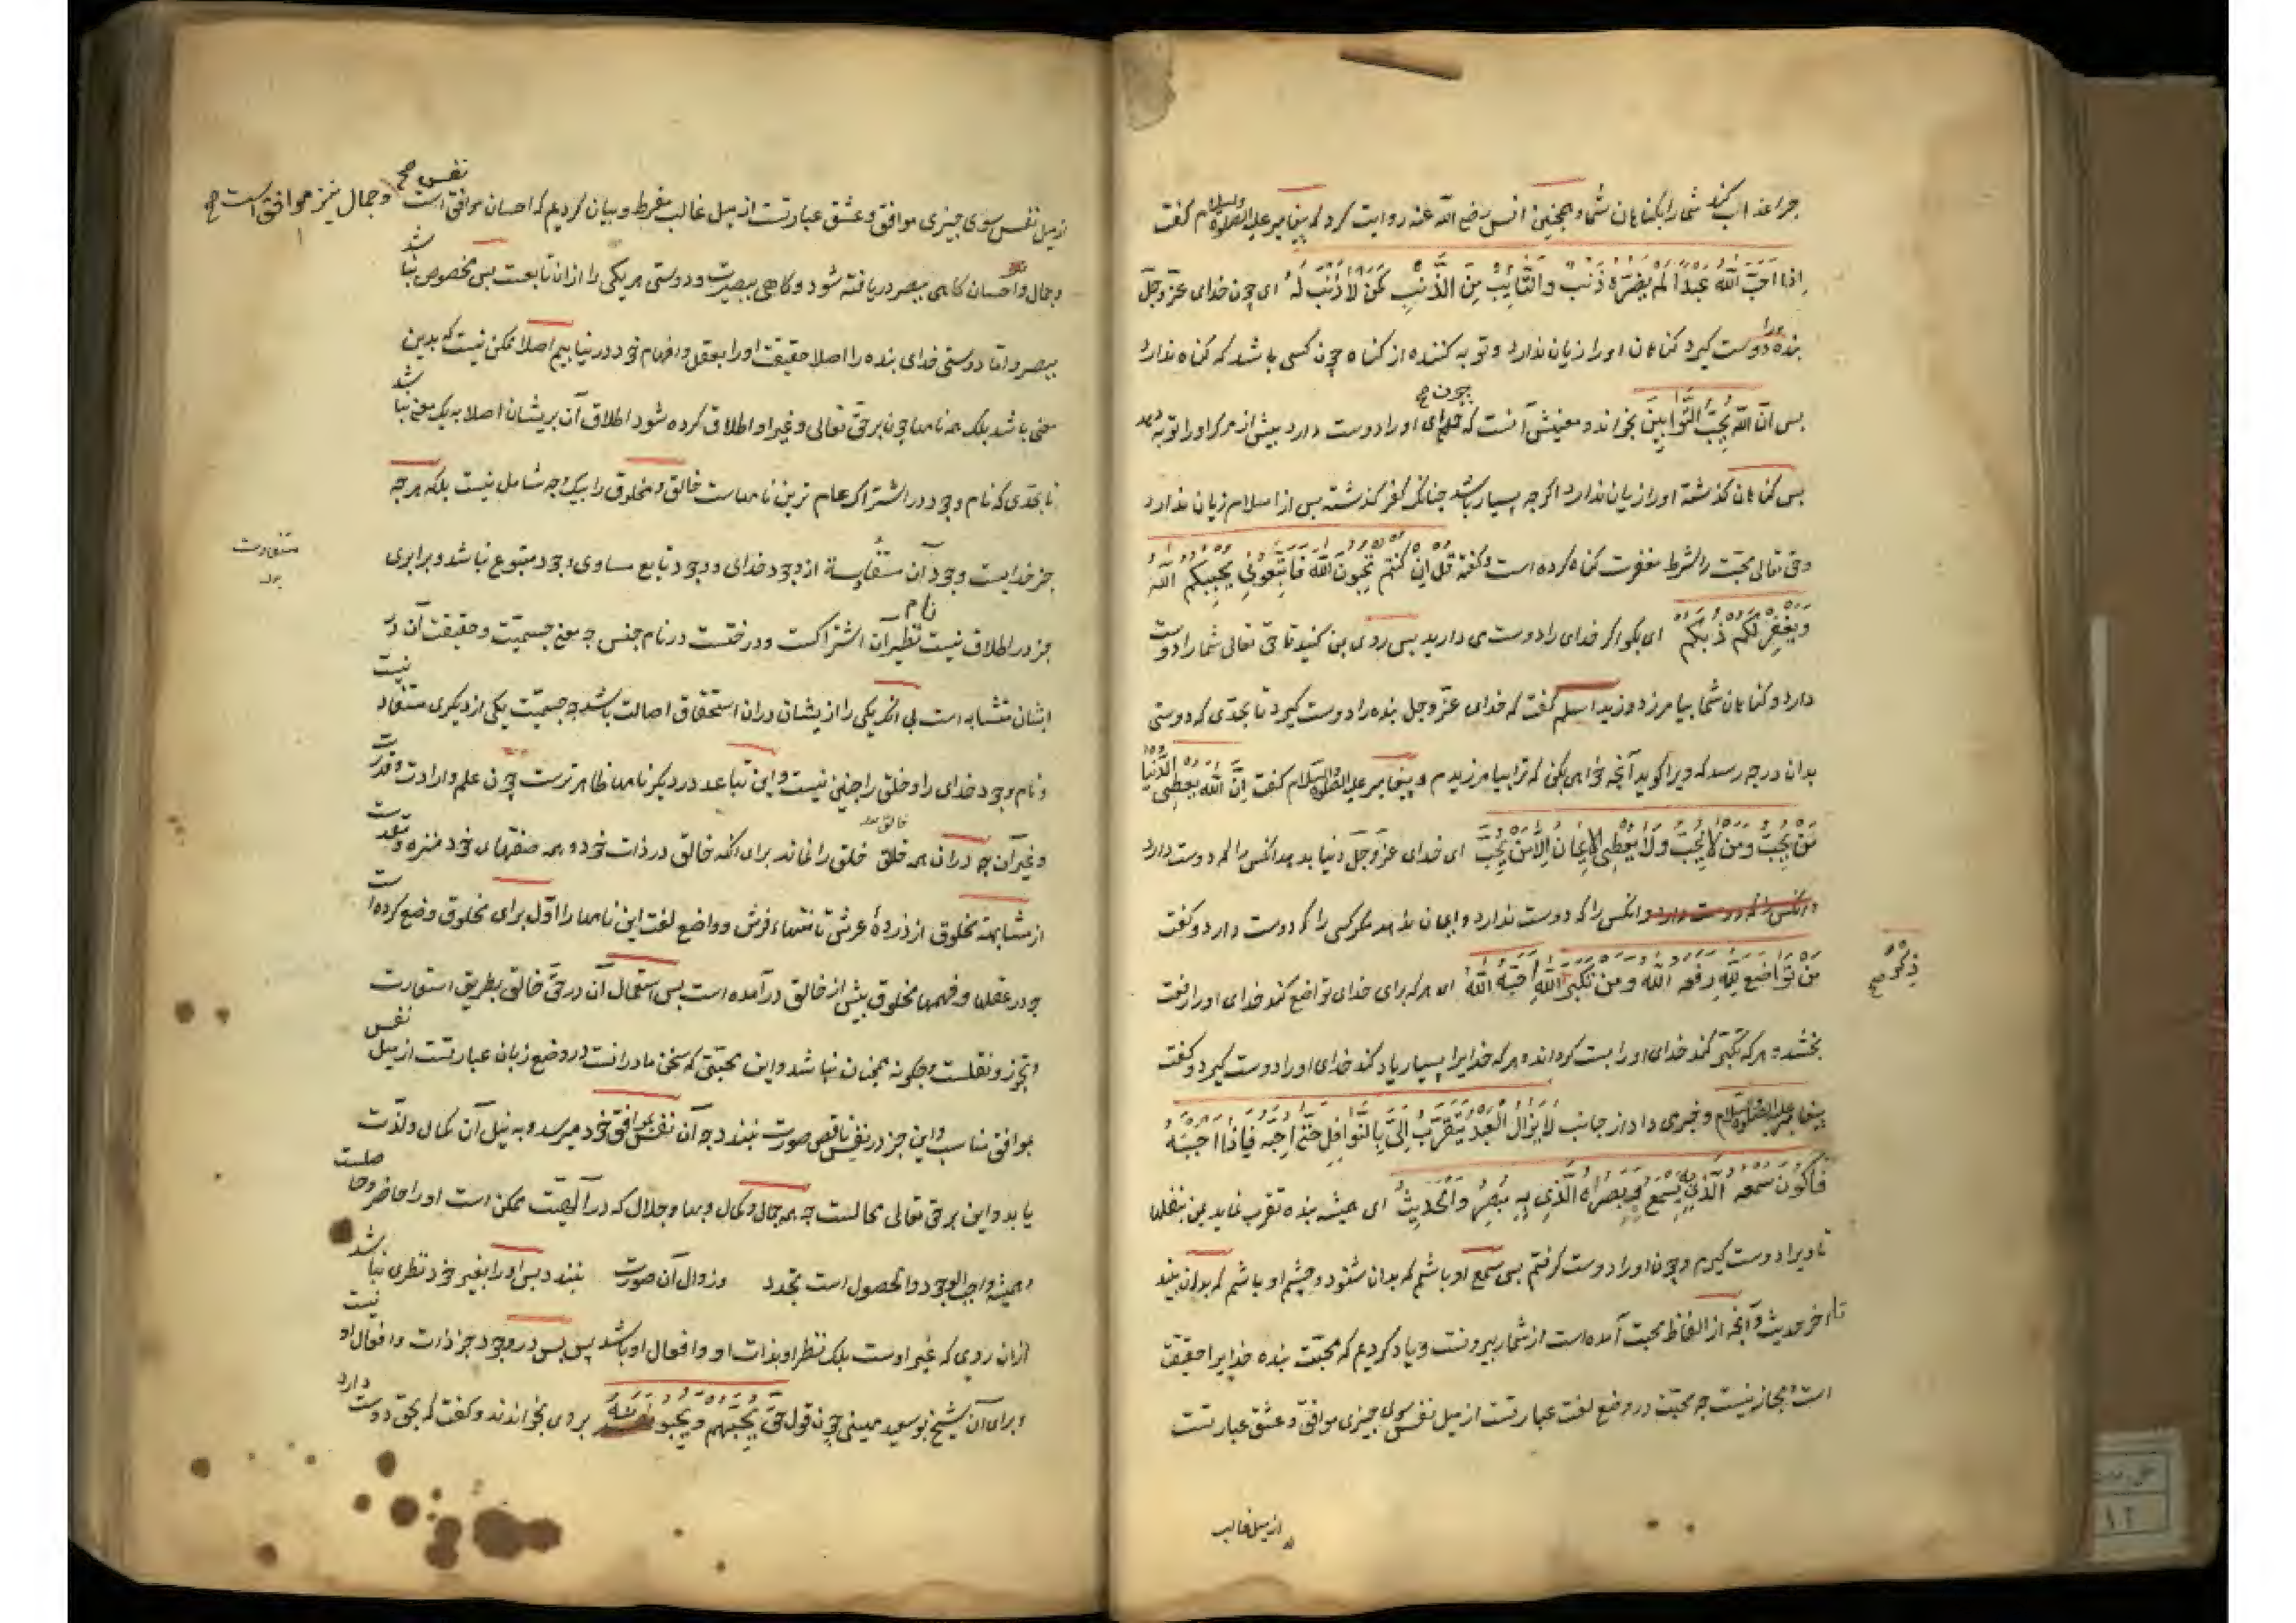 چرا عذاب کند شما را بکناهان شما و همچنین انس رضی الله عنه روایت کرد که پیغامبر علیه الصلوة والسلام کفت
اذا احب الله عبدا لم یضره ذنب والتایب من الذنب کمن لا ذنب له ای چون خدای عز وجل
بنده را دوست کیرد کناهان او را زیان ندارد و توبه کننده از کناه چون کسی باشد که کناه ندارد
پس ان الله یحب التوابین بخواند و معنیش آنست که چون خدای او را دوست دارد پیش از مرک او را توبه دهد
پس کناهان کذشته او را زیان ندارد اکرچه بسیار باشد چنانکه کفر کذشته پس از اسلام زیان ندارد
وحق تعالی محبت را شرط مغفرت کناه کرده است وکفته قل ان کنتم تحبون الله فاتبعونی یحببکم الله
ویغفر لکم ذنوبکم ای بکو اکر خدای را دوست می دارید پس روی من کنید تا حق تعالی شما را دوست
دارد و کناهان شما بیامرزد و زید اسلم کفت که خدای عز وجل بنده را دوست کیرد تا بحدی که دوستی
بدان درجه رسد که ویرا کوید آنچه خواهی بکن که ترا بیامرزیدم و پیغامبر علیه الصلوة والسلام کفت ان الله یعطی الدنیا
من یحب ومن لا یحب ولا یعطی الایمان الا من یحب ای خدای عز وجل دنیا بدهد آنکس را که دوست دارد
وانکس را که دوست دارد وانکس را که دوست ندارد و ایمان ندهد مکر کسی را که دوست دارد وکفت
من تواضع لله رفعه الله ومن تکبر الله احبه الله ای هر که برای خدای تواضع کند خدای او را رفعت
ذکر صح
بخشد و هر که تکبر کند خدای او را پست کرداند و هر که خدایرا بسیار یاد کند خدای او را دوست کیرد وکفت
پیغامبر علیه الصلوة والسلام وخبری داد از جانب لا یزال العبد یتقرب الی بالنوافل حتی احبه فاذا احببته
فاکون سمعه الذی به یسمع وبصره الذی به یبصر والحدیث ای همیشه بنده تقرب نماید بمن بنفلها
تا ویرا دوست کیرم وچون او را دوست کرفتم پس سمع او باشم که بدان شنود وچشم او باشم که بدان بیند
تا آخر حدیث وآنچه از الفاظ محبت آمده است از شمار بیرونست ویاد کردیم که محبت بنده خدایرا حقیقت
است مجاز نیست چه محبت در وضع لغت عبارتست از میل نفس سوی چیزی موافق وعشق عبارتست
از میل غالب
از میل نفس سوی چیزی موافق وعشق عبارتست از میل غالب مفرط وبیان کردیم که احسان موافق نفس صح است وجمال نیز موافق است صح
وجمال واحسان کاهی ببصر دریافته شود وکاهی ببصیرت ودوستی هر یکی را ازان تابعست پس مخصوص نباشد
ببصر واما دوستی خدای بنده را اصلا حقیقت او را بعقل وافهام خود در نیابیم اصلا ممکن نیست که بدین
معنی باشد بلکه همه نامها چون بر حق تعالی وغیر او اطلاق کرده شود اطلاق آن بریشان اصلا به یک معنی نباشد
تا بحدی که نام وجود در اشتراک عام ترین نامهاست خالق ومخلوق را بیک وجه شامل نیست بلکه هر چه
جز خدایست وجود آن مستفاد است از وجود خدای ووجود تابع مساوی وجود متبوع نباشد وبرابری
متفاوت
بود
جز در اطلاق نام نیست نظیر آن اشتراکست ودرختست در نام جنس چه معنی جسمیت وحقیقت آن در
ایشان متشابه است بی آنکه یکی را از یشان دران استحقاق اصالت باشد چه جسمیت یکی از دیکری مستفاد نیست
ونام وجود خدای را وخلق را چنین نیست واین تباعد در دیکر نامها ظاهر ترست چون علم وارادت وقدرت
وغیر آن چه دران همه خالق خلق را نماند برای آنکه خالق در ذات خود وهمه صفتهای خود منزه ومقدست
از مشابهت مخلوق از ذروهٔ عرش تا منتهاء فرش وواضع لغت این نامها را اول برای مخلوق وضع کرده است
چه در عقلها وفهمها مخلوق پیش از خالق درآمده است پس استعمال آن در حق خالق بطریق استعارت
وتجوز ونقلست وچکونه همچنان نباشد واین محبتی که سخن ما در آنست در وضع زبان عبارتست از میل نفس
موافق مناسب واین جز در نفس ناقص صورت نبندد چه آن نفس بموافق خود میرسد وبه نیل آن کمال ولذت
یابد واین بر حق تعالی محالست چه همه جمال وکمال وبها وجلال که در الهیت ممکن است او را حاضر وحاصلست
وهمیشه واجب الوجود والحصول است تجدد وزوال آن صورت نبندد پس او را بغیر خود نظری نباشد
ازان روی که غیر اوست بلک نظر او بذات او وافعال او باشد پس در وجود جز ذات وافعال او نیست
وبرای آن شیخ بو سعید میهنی چون قول حق یحبهم ویحبونه بر وی بخواندند وکفت که بحق دوست دارد